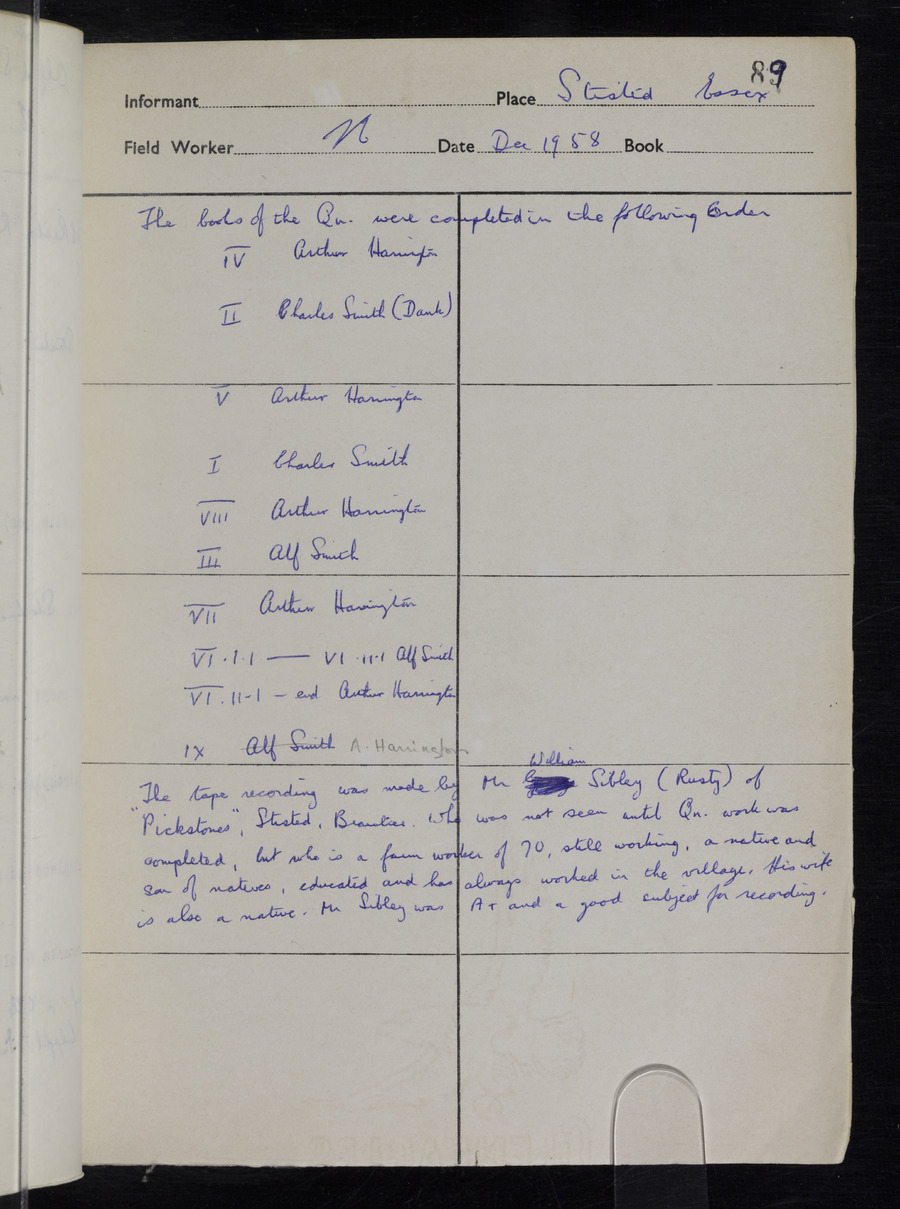 89
Informant Place Stisted Essex
Field Worker N Date Dec 1958 Book
The books of the Qn. were completed in the following Order
IV Arthur Harrington
II Charles Smith (Dank)
V Arthur Harrington
I Charles Smith
VIII Arthur Harrington
III Alf Smith
VII Arthur Harrington
VI.1.1 — VI.11.1 Alf Smith
VI.11-1 – end Arthur Harrington
IX Alf Smith A. Harrington
William
The tape recording was made by Mr Sibley (Rusty) of
"Pickstones", Stisted, Braintree. Who was not seen until Qn. work was
completed, but who is a farm worker of 70, still working, a native and
son of natives, educated and has always worked in the village. His wife
is also a native. Mr Sibley was A+ and a good subject for recording.